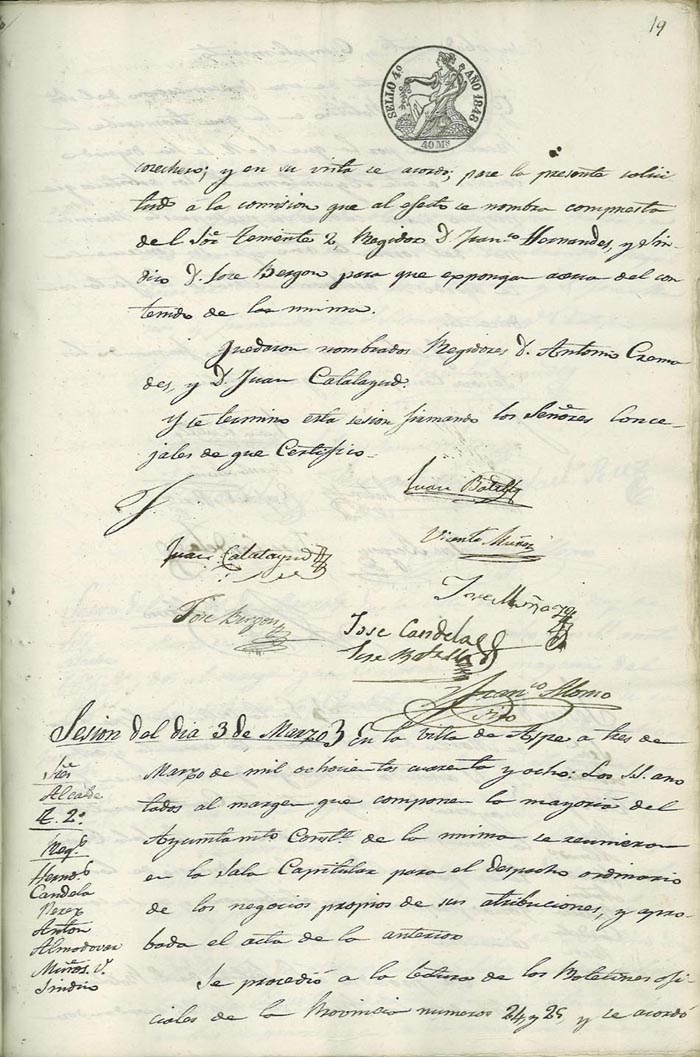 19
SELLO 4º AÑO 1848
40 Ms
corechero; y en su vista se acordó; pase la presente solici
tud à la comision que al efecto se nombra compuesta
del Sor. Temente 2, Regidor D. Franco. Hernandes, y Sin
dico D. Jose Bergon para que expongan acerca del con
tenido de la misma.
Quedaron nombrados Regidores D. Antonio Crema
des, y D. Juan Calatayud.
Y se termino esta sesion firmando los Señores Conce-
jales de que Certifico.
Juan Botella
Vicente Muñoz
Juan Calatayud
Jose Muñoz
Jose Bergon
Jose Candela
Jose Botella
Franco Alonso
Srio
Sesion del dia 3 de Marzo
En la Villa de Aspe a tres de
Marzo de mil ochocientos cuarenta y ocho: Los SS. ano
tados al margen que componen la mayoria del
Ayuntamto Constl. de la misma se reunieron
en la Sala Capitular para el despacho ordinario
de los negocios propios de sus atribuciones, y apro-
bada el acta de la anterior
Se procedió a la lectura de los Boletines ofi-
ciales de la Provincia numeros 24 y 25, y se acordó
Sres
Alcalde
T. 2º
Regs
Hernds
Candela
Perez
Anton
Almodovar
Muños V.
Sindico